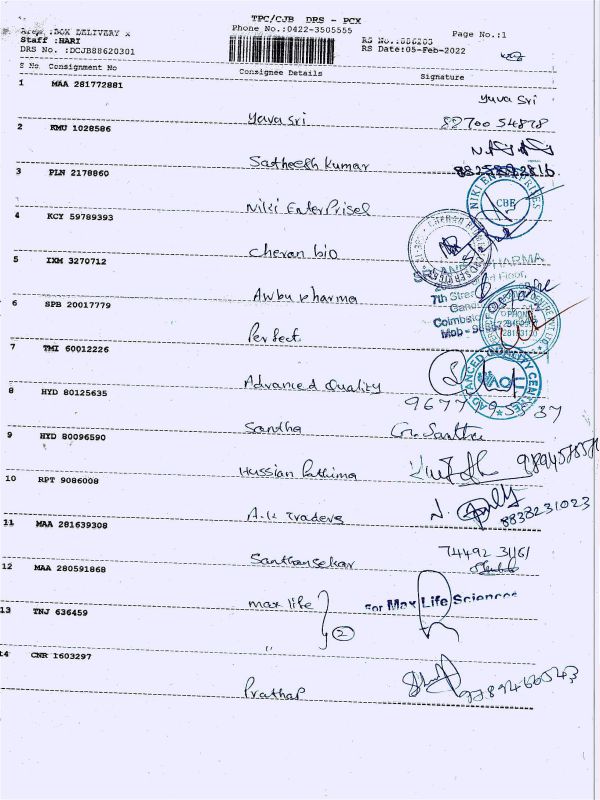 TPC/CJB DRS - PCX
Phone No.:0422-3505555
Page No.:1
Area :BOX DELIVERY x
Staff :HARI
DRS No. :DCJB88620301
RS No.:886203
RS Date:05-Feb-2022
S No. Consignment No Consignee Details Signature
1 MAA 281772881
yuva sri
yuva sri
88700 54878
2 KMU 1028586
Satheesh kumar
3 PLN 2178860
Niki EnterPrises
NIKI ENTERPRISES
CBR
4 KCY 59789393
Cheran bio
5 IXM 3270712
Awbu pharma
PHARMA
Floor,
7th Street
Coimbatore
Mob -
6 SPB 20017779
Perfect
7 TMI 60012226
Advanced Quality
ADVANCED QUALITY CENTRE
8 HYD 80125635
9677 05537
Santha
9 HYD 80096590
Hussian Pathima
10 RPT 9086008
A.K Traders
N.
8838231023
11 MAA 281639308
Santhansekar
74492 31161
12 MAA 280591868
max life
for Max Life Sciences
13 TNJ 636459
2
"
14 CNR 1603297
Prathap